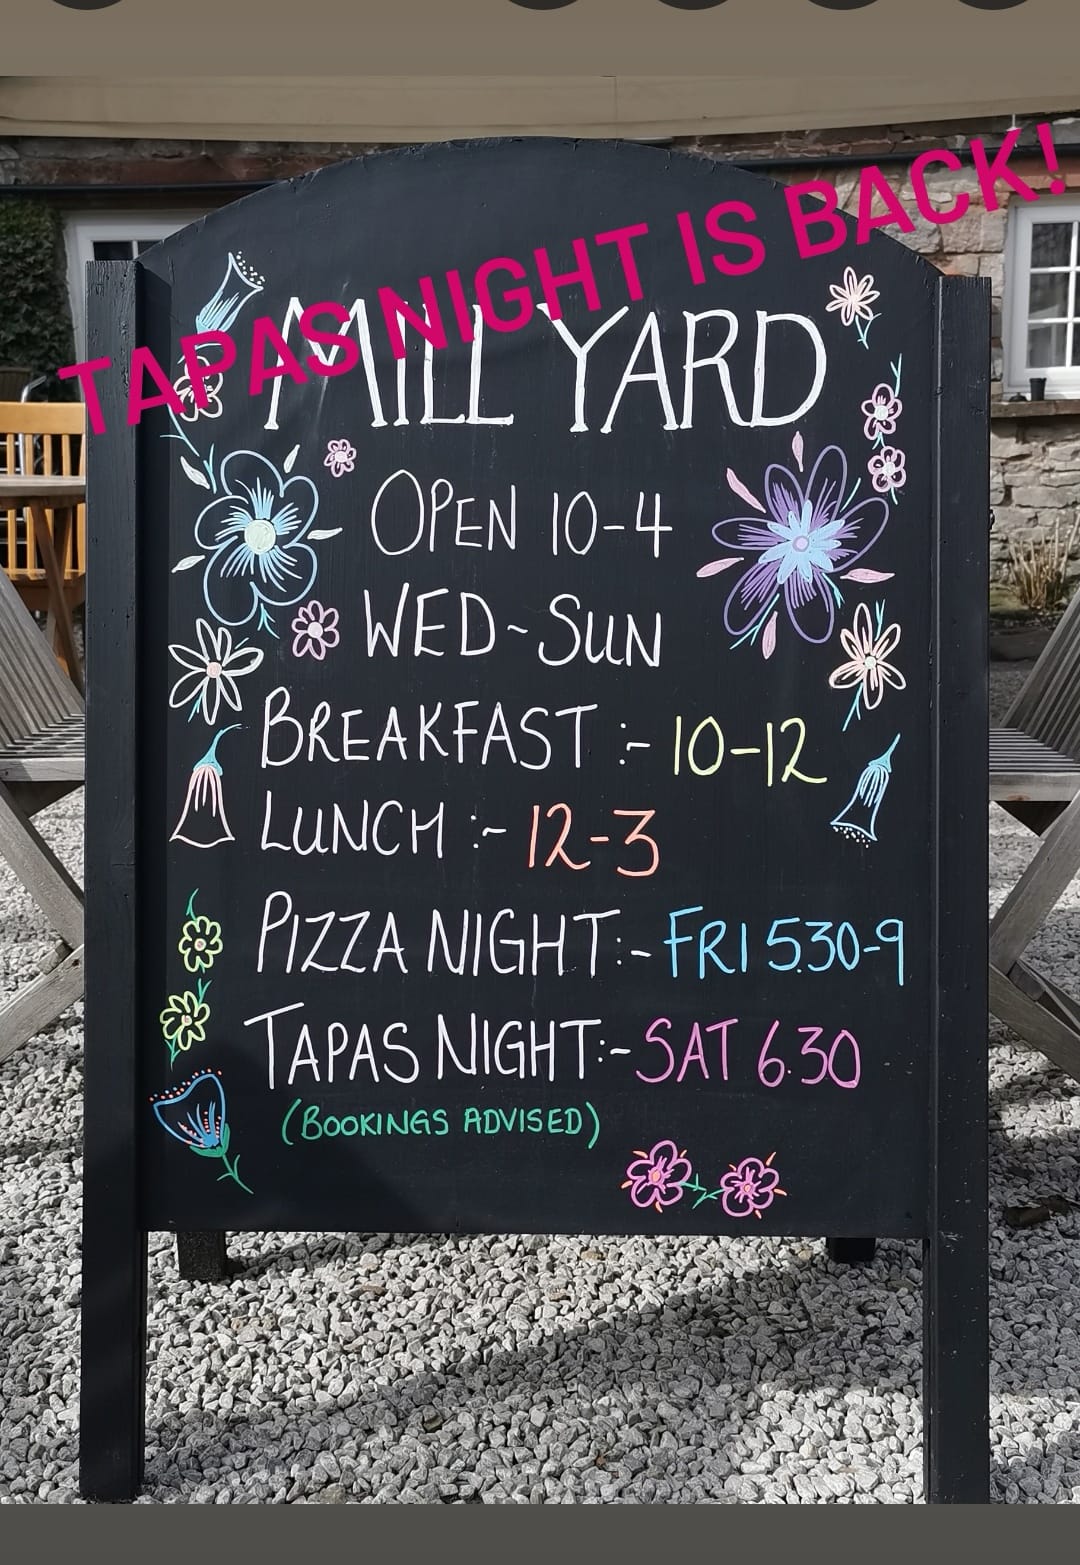 TAPAS NIGHT IS BACK!
MILL YARD
OPEN 10-4
WED~SUN
BREAKFAST :- 10-12
LUNCH :- 12-3
PIZZA NIGHT:- FRI 5.30-9
TAPAS NIGHT:- SAT 6.30
(BOOKINGS ADVISED)